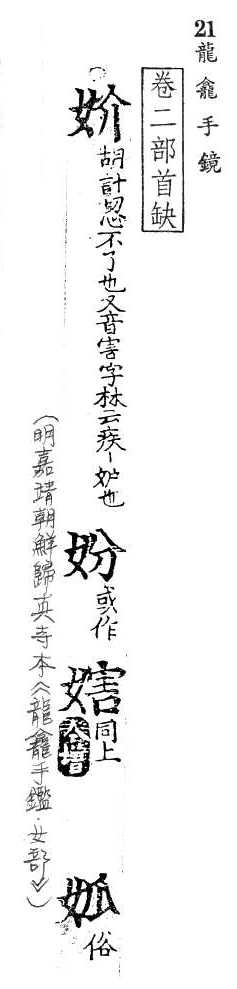 21龍龕手鏡
卷二部首缺
妎胡計不了也又音害字林云疾丨妒也
妢或作
㛿同上
俗
(明嘉靖朝鮮歸真寺本《龍龕手鑑·女部》)